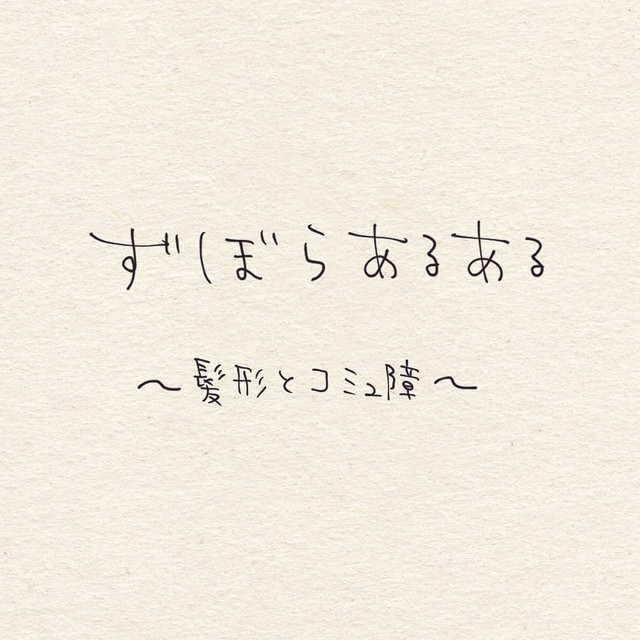 ずぼらあるある
〜髪形とコミュ障〜